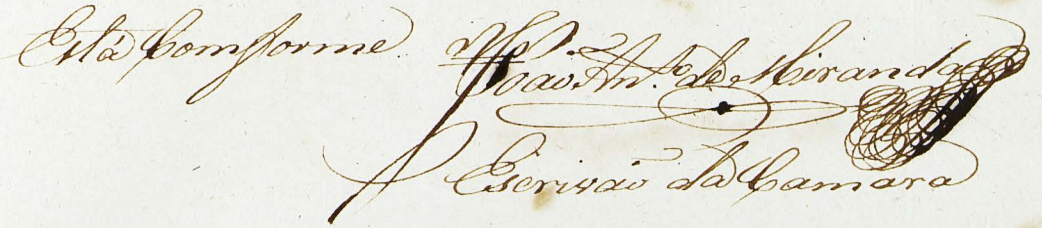 Está Comforme João Ant.º de Miranda
Escrivaõ da Camara